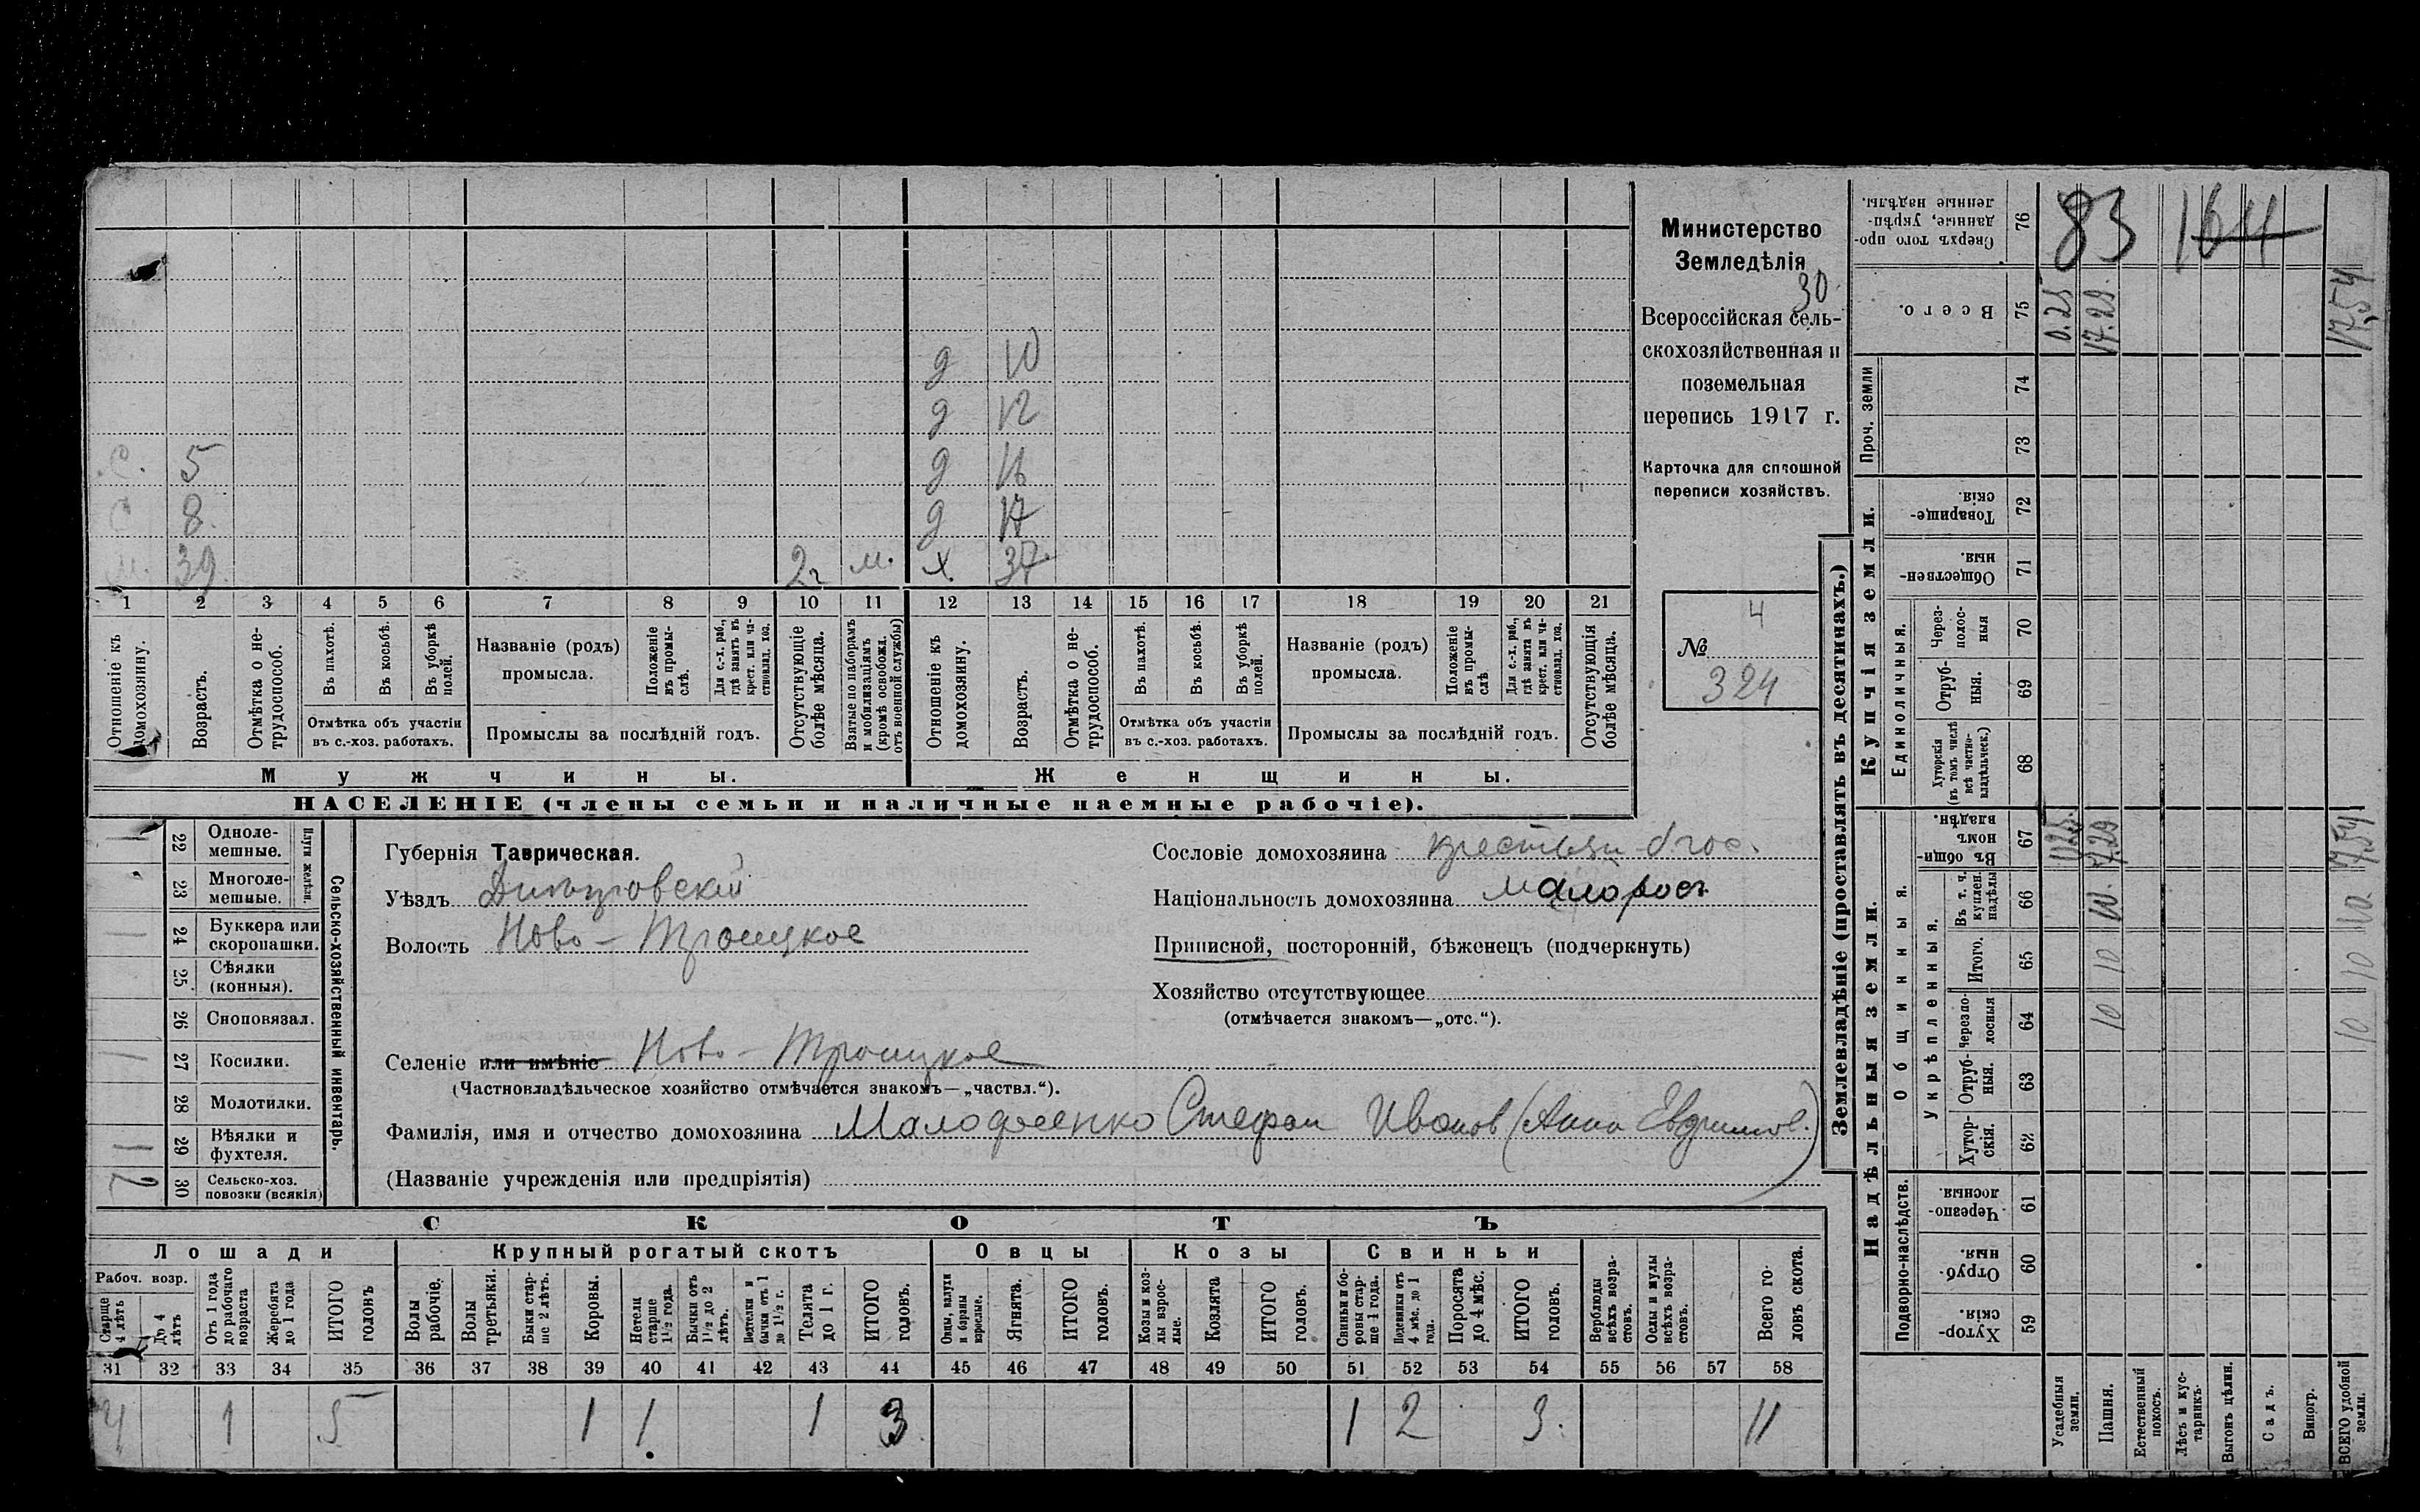 Министерство
Земледѣлія
30
Всероссійская сель-
скохозяйственная и
поземельная
перепись 1917 г.
Карточка для сплошной
переписи хозяйствъ.
№ 4
324
д 10
д 12
с. 5 д 16
с 8 д 17
м. 39 2 г м. х. 37
1 2 3 4 5 6 7 8 9 10 11 12 13 14 15 16 17 18 19 20 21
Отношеніе къ домохозяину.
Возрастъ.
Отмѣтка о не-трудоспособ.
Въ пахотѣ.
Въ косьбѣ.
Въ уборкѣ полей.
Отмѣтка объ участіи
въ с.-хоз. работахъ.
Названіе (родъ)
промысла.
Положеніе въ промы-слѣ.
Для с.-х. раб., гдѣ занятъ въ крест. или ча-стновлад. хоз.
Промыслы за послѣдній годъ.
Отсутствующіе болѣе мѣсяца.
Взятые по наборамъ и мобилизаціямъ (кромѣ освобожд. отъ военной службы)
Отношеніе къ домохозяину.
Возрастъ.
Отмѣтка о не-трудоспособ.
Въ пахотѣ.
Въ косьбѣ.
Въ уборкѣ полей.
Отмѣтка объ участіи
въ с.-хоз. работахъ.
Названіе (родъ)
промысла.
Положеніе въ промы-слѣ
Для с.-х. раб., гдѣ занята въ крест. или ча-стновлад. хоз.
Промыслы за послѣдній годъ.
Отсутствующія болѣе мѣсяца.
Мужчины. Женщины.
НАСЕЛЕНІЕ (члены семьи и наличные наемные рабочіе).
Сельско-хозяйственный инвентарь.
Плуги желѣзн.
22 Одноле-мешные. 1
23 Многоле-мешные.
24 Буккера или скоропашки. 1
25 Сѣялки (конныя).
26 Сноповязал.
27 Косилки. 1
28 Молотилки.
29 Вѣялки и фухтеля. 1
30 Сельско-хоз. повозки (всякія) 2
Губернія Таврическая.
Уѣздъ Днѣпровскій
Волость Ново-Троицкое
Селеніе или имѣніе Ново-Троицкое
(Частновладѣльческое хозяйство отмѣчается знакомъ—„частвл.“).
Сословіе домохозяина
Національность домохозяина малорос
Приписной, посторонній, бѣженецъ (подчеркнуть)
Хозяйство отсутствующее
(отмѣчается знакомъ—„отс.“).
Фамилія, имя и отчество домохозяина Стефан Иванов (Анна
(Названіе учрежденія или предпріятія)
СКОТЪ
Лошади Крупный рогатый скотъ Овцы Козы Свиньи
Рабоч. возр.
Старше 4 лѣтъ
До 4 лѣтъ
Отъ 1 года до рабочаго возраста
Жеребята до 1 года
ИТОГО головъ
Волы рабочіе.
Волы третьяки.
Быки стар-ше 2 лѣтъ.
Коровы.
Нетели старше 1½ года.
Бычки отъ 1½ до 2 лѣтъ.
Подтелки и бычки отъ 1 до 1½ г.
Телята до 1 г.
ИТОГО головъ.
Овцы, валухи и бараны взрослые.
Ягнята.
ИТОГО головъ.
Козы и коз-лы взрос-лые.
Козлята
ИТОГО головъ.
Свиньи и бо-ровы стар-ше 1 года.
Подсвинки отъ 4 мѣс. до 1 года.
Поросята до 4 мѣс.
ИТОГО головъ.
Верблюды всѣхъ возра-стовъ.
Ослы и мулы всѣхъ возра-стовъ.
Всего го-ловъ скота.
31 32 33 34 35 36 37 38 39 40 41 42 43 44 45 46 47 48 49 50 51 52 53 54 55 56 57 58
4 1 5 1 1 1 3 1 2 3. 11
Землевладѣніе (проставлять въ десятинахъ.)
83 164
Купчія земли.
Надѣльныя земли.
Сверхъ того про-данные, укрѣп-ленные надѣлы. 76
Всего. 75 0.25 17.29. 17,54
Проч. земли 74
73
Товарище-скія. 72
Обществен-ныя. 71
Единоличныя.
Через-полос-ныя 70
Отруб-ныя. 69
Хуторскія (въ томъ числѣ всѣ частно-владѣльческ.) 68
Общинныя.
Въ общин-номъ владѣн. 67 7,29 7,54
Укрѣпленныя.
Въ т. ч. куплен. надѣлы 66 10. 10
Итого. 65 10 10
Черезпо-лосныя 64 10 10
Отруб-ныя. 63
Хутор-скія. 62
Подворно-наслѣдств.
Черезпо-лосныя. 61
Отруб-ныя. 60
Хутор-скія 59
Усадебныя земли.
Пашня.
Естественный покосъ.
Лѣсъ и кус-тарникъ.
Выгонъ цѣлин.
Садъ.
Виногр.
ВСЕГО удобной земли.